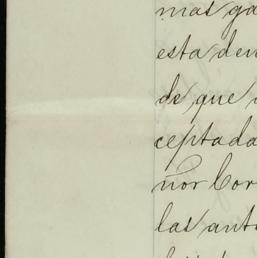 mas ga
esta de
de que
ceptada
ñor Cor
las ant